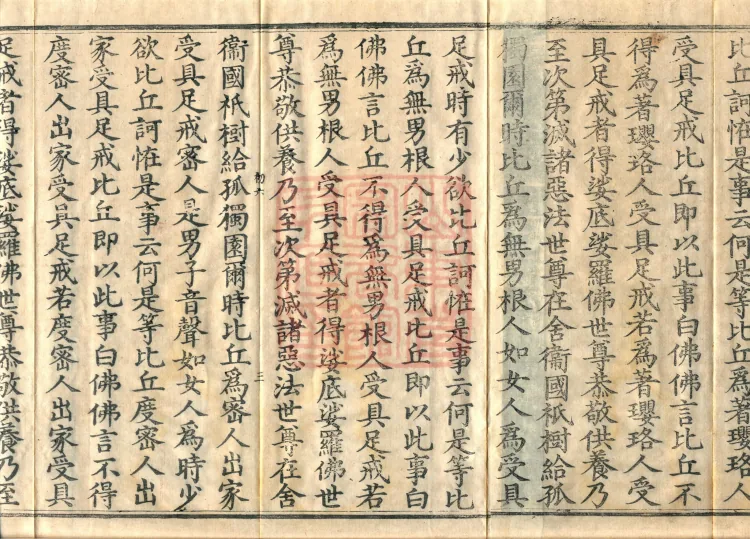 比丘訶恠是事云何是等比丘爲著瓔珞人
受具足戒比丘即以此事白佛佛言比丘不
得爲著瓔珞人受具足戒若爲著瓔珞人受
具足戒者得娑底娑羅佛世尊恭敬供養乃
至次第滅諸惡法世尊在舍衞國祇樹給孤
獨園爾時比丘爲無男根人如女人爲受具
足戒時有少欲比丘訶恠是事云何是等比
丘爲無男根人受具足戒比丘即以此事白
佛佛言比丘不得爲無男根人受具足戒若
爲無男根人受具足戒者得娑底娑羅佛世
尊恭敬供養乃至次第滅諸惡法世尊在舍
初六 三
衞國祇樹給孤獨園爾時比丘爲密人出家
受具足戒密人是男子音聲如女人爲時少
欲比丘訶恠是事云何是等比丘度密人出
家受具足戒比丘即以此事白佛佛言不得
度密人出家受具足戒若度密人出家受具
足戒者得娑底娑羅佛世尊恭敬供養乃至